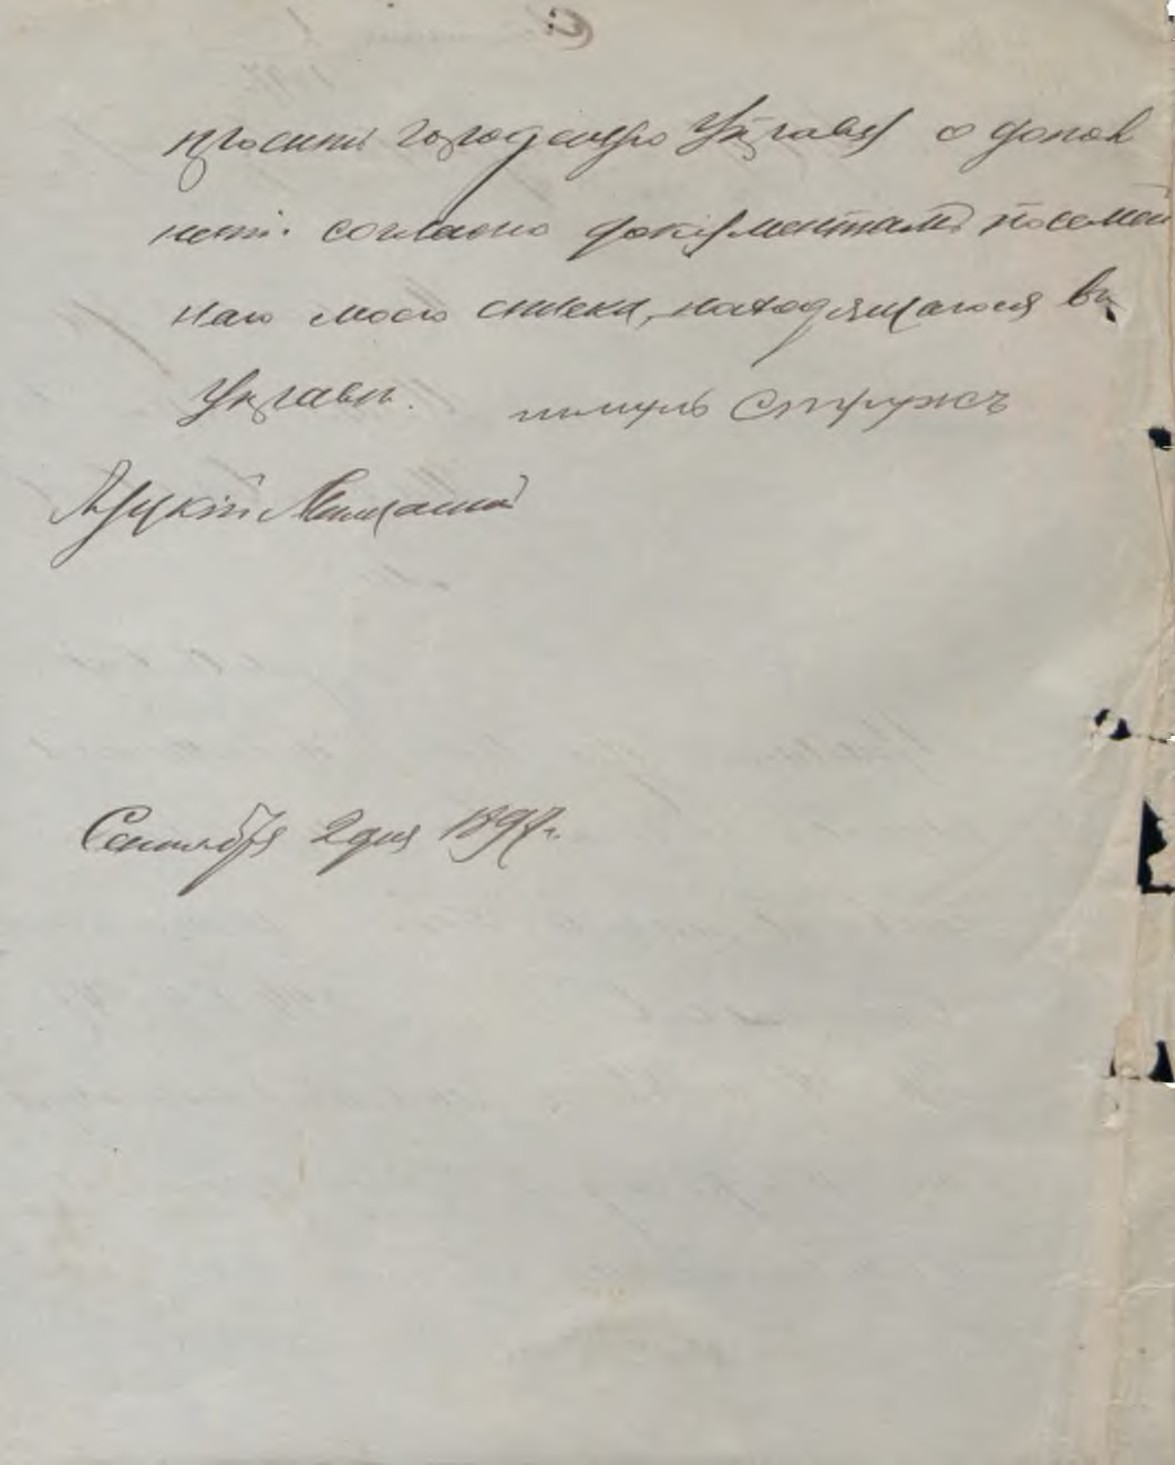 просить городскую Управу о допол
неніи согласно документамъ посемей
наго моего списка, находящагося въ
Управѣ. шмуль Стружъ
Луцкій Мѣщанинъ
Сентября 2 дня 1897 г.